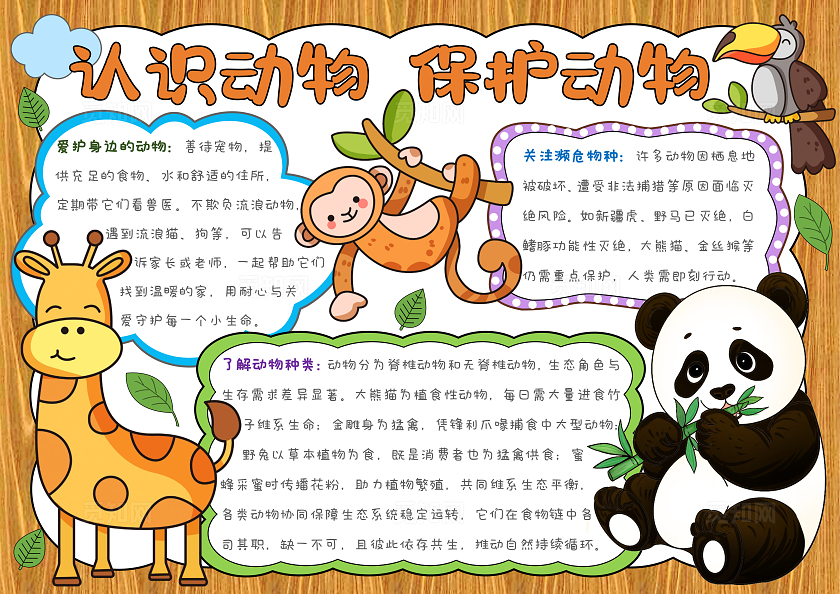 认识动物 保护动物
爱护身边的动物：善待宠物，提
供充足的食物、水和舒适的住所，
定期带它们看兽医。不欺负流浪动物，
遇到流浪猫、狗等，可以告
诉家长或老师，一起帮助它们
找到温暖的家，用耐心与关
爱守护每一个小生命。
关注濒危物种：许多动物因栖息地
被破坏、遭受非法捕猎等原因面临灭
绝风险。如新疆虎、野马已灭绝，白
鳍豚功能性灭绝，大熊猫、金丝猴等
仍需重点保护，人类需即刻行动。
了解动物种类：动物分为脊椎动物和无脊椎动物，生态角色与
生存需求差异显著。大熊猫为植食性动物，每日需大量进食竹
子维系生命；金雕身为猛禽，凭锋利爪喙捕食中大型动物；
野兔以草本植物为食，既是消费者也为猛禽供食；蜜
蜂采蜜时传播花粉，助力植物繁殖，共同维系生态平衡，
各类动物协同保障生态系统稳定运转，它们在食物链中各
司其职，缺一不可，且彼此依存共生，推动自然持续循环。